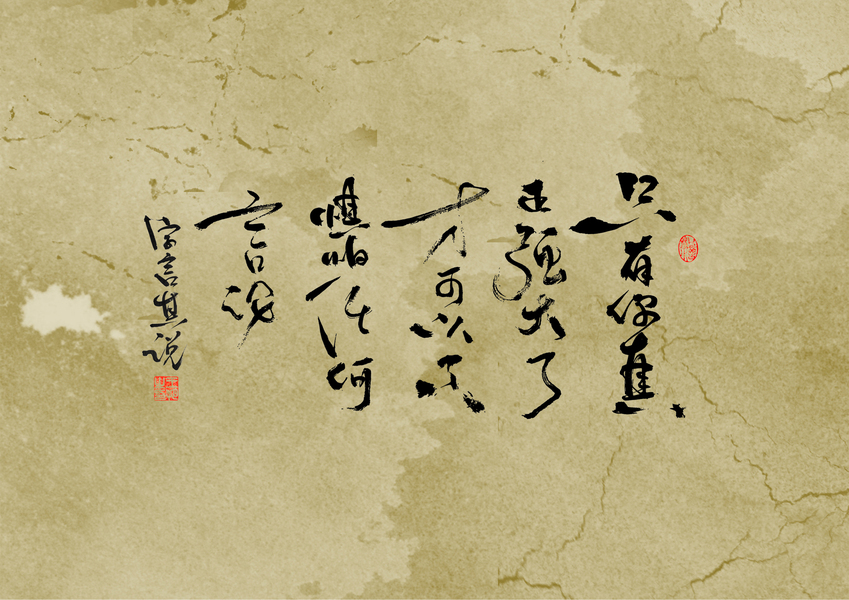 只有你真
正强大了
才可以不
惧怕任何
言说
言其说